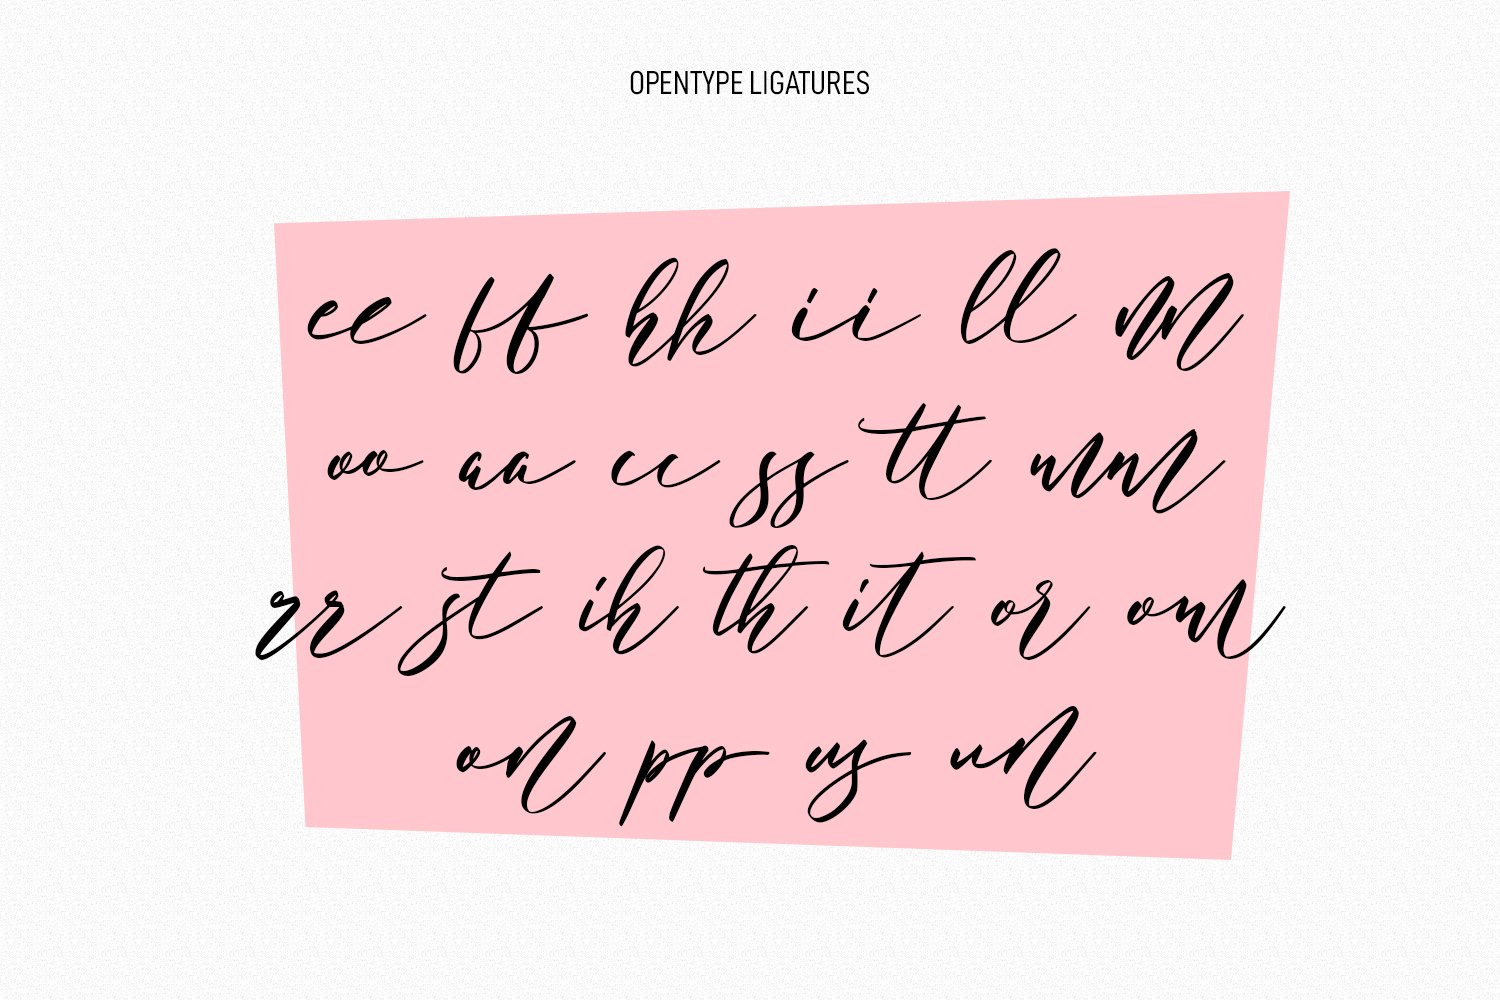 OPENTYPE LIGATURES
ee ff hh ii ll nn
oo aa cc ss tt mm
rr st ih th it or om
on pp us un